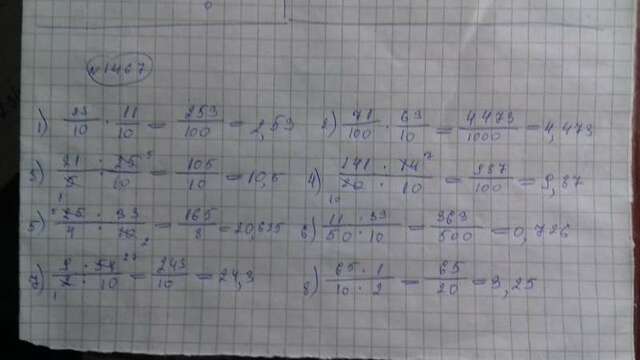 №1467
1) 23/10 · 11/10 = 253/100 = 2,53 2) 71/100 · 63/10 = 4473/1000 = 4,473
3) 21 · 25 5/5 1 · 10 = 105/10 = 10,5 4) 141 · 14 7/20 10 · 10 = 987/100 = 9,87
5) 5 25 · 33/4 · 10 2 = 165/8 = 20,625 6) 11 · 33/50 · 10 = 363/500 = 0,726
7) 9 · 54 27/2 1 · 10 = 243/10 = 24,3 8) 65 · 1/10 · 2 = 65/20 = 3,25